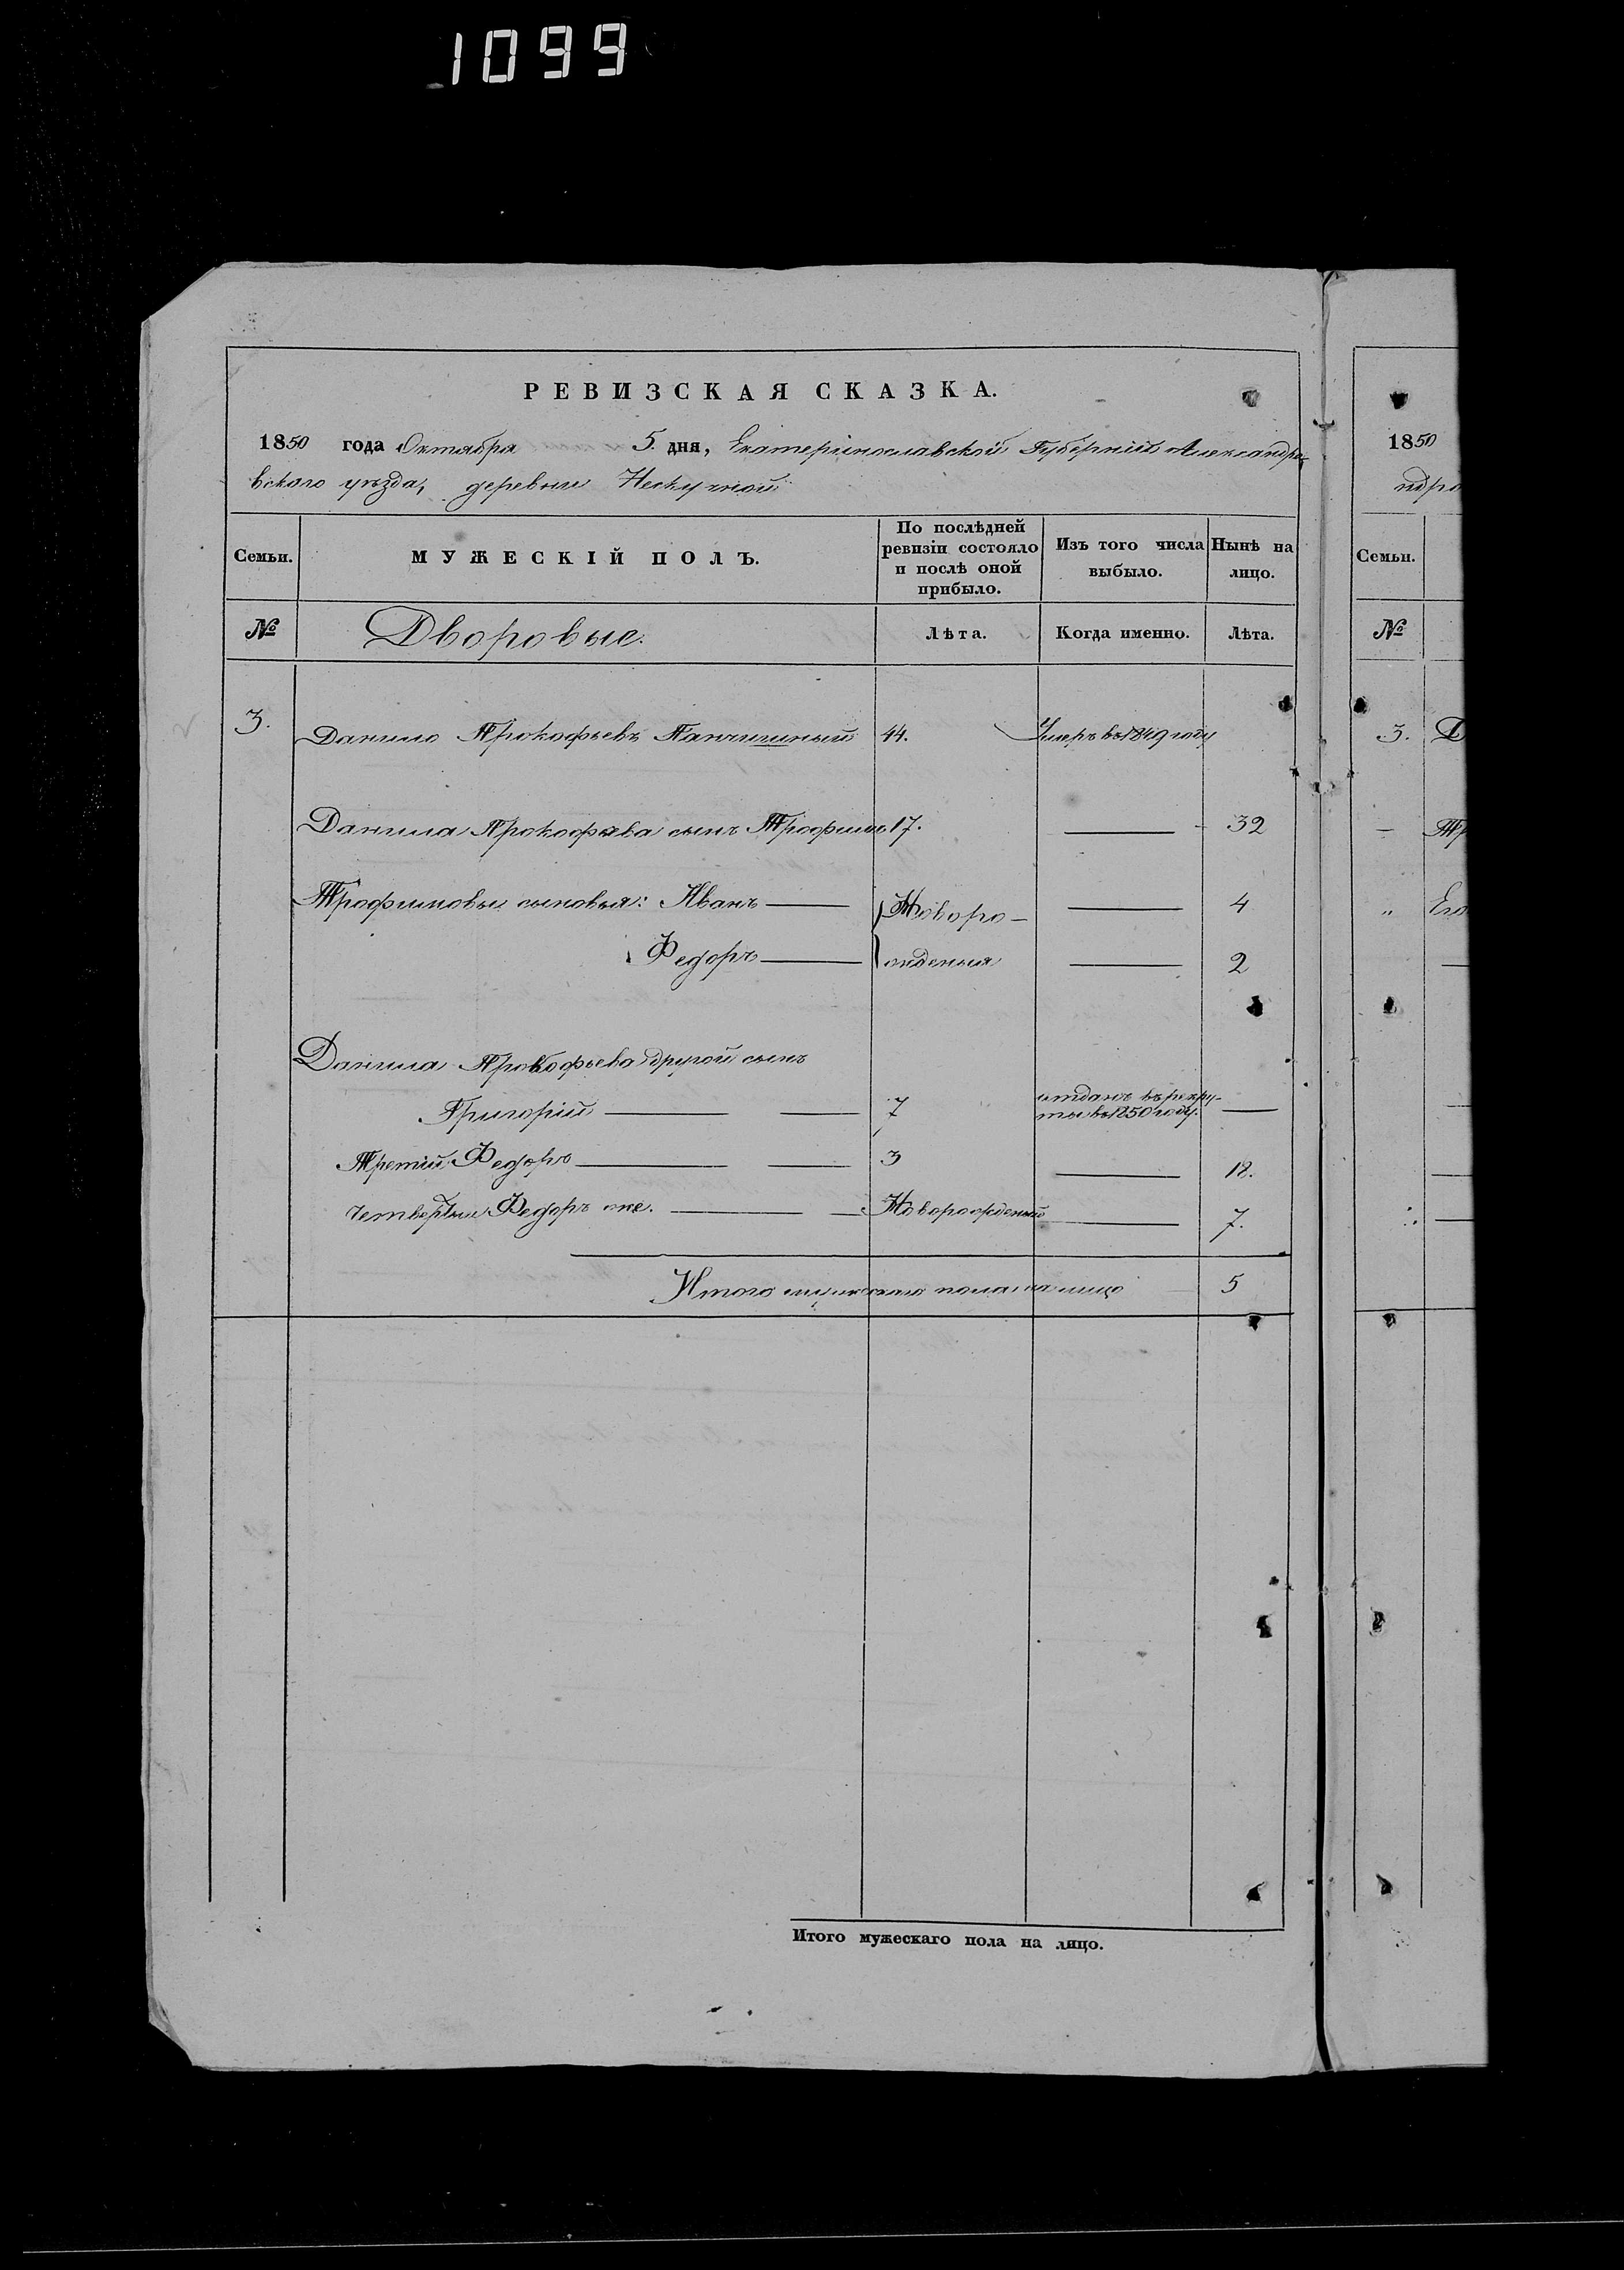 1099
РЕВИЗСКАЯ СКАЗКА.
1850 года Октября 5. дня, Екатеринославской Губерніи Александро-
вскаго уѣзда, деревни Нескучной
Семьи. МУЖЕСКІЙ ПОЛЪ. По послѣдней ревизіи состояло и послѣ оной прибыло. Изъ того числа выбыло. Нынѣ на лицо.
№ Дворовые. Лѣта. Когда именно. Лѣта.
3. Данило Прокофьевъ 44. Умеръ въ 1849 году
Данила Прокофьева сынъ Трофимъ 17. — 32
Трофимовы сыновья: Иванъ — Новоро- — 4
Федоръ — жденыя — 2
Данила Прокофьева другой сынъ
Григорій — — 7 отданъ въ рекру-
ты въ 1850 году. —
Третій Федоръ — — 3 — 18.
Четвертый Федоръ же. — — Новорожденый — 7.
Итого мужескаго пола на лицо 5
Итого мужескаго пола на лицо.
1850
ндро
Семьи.
№
3. Д
— Тр
„ Его